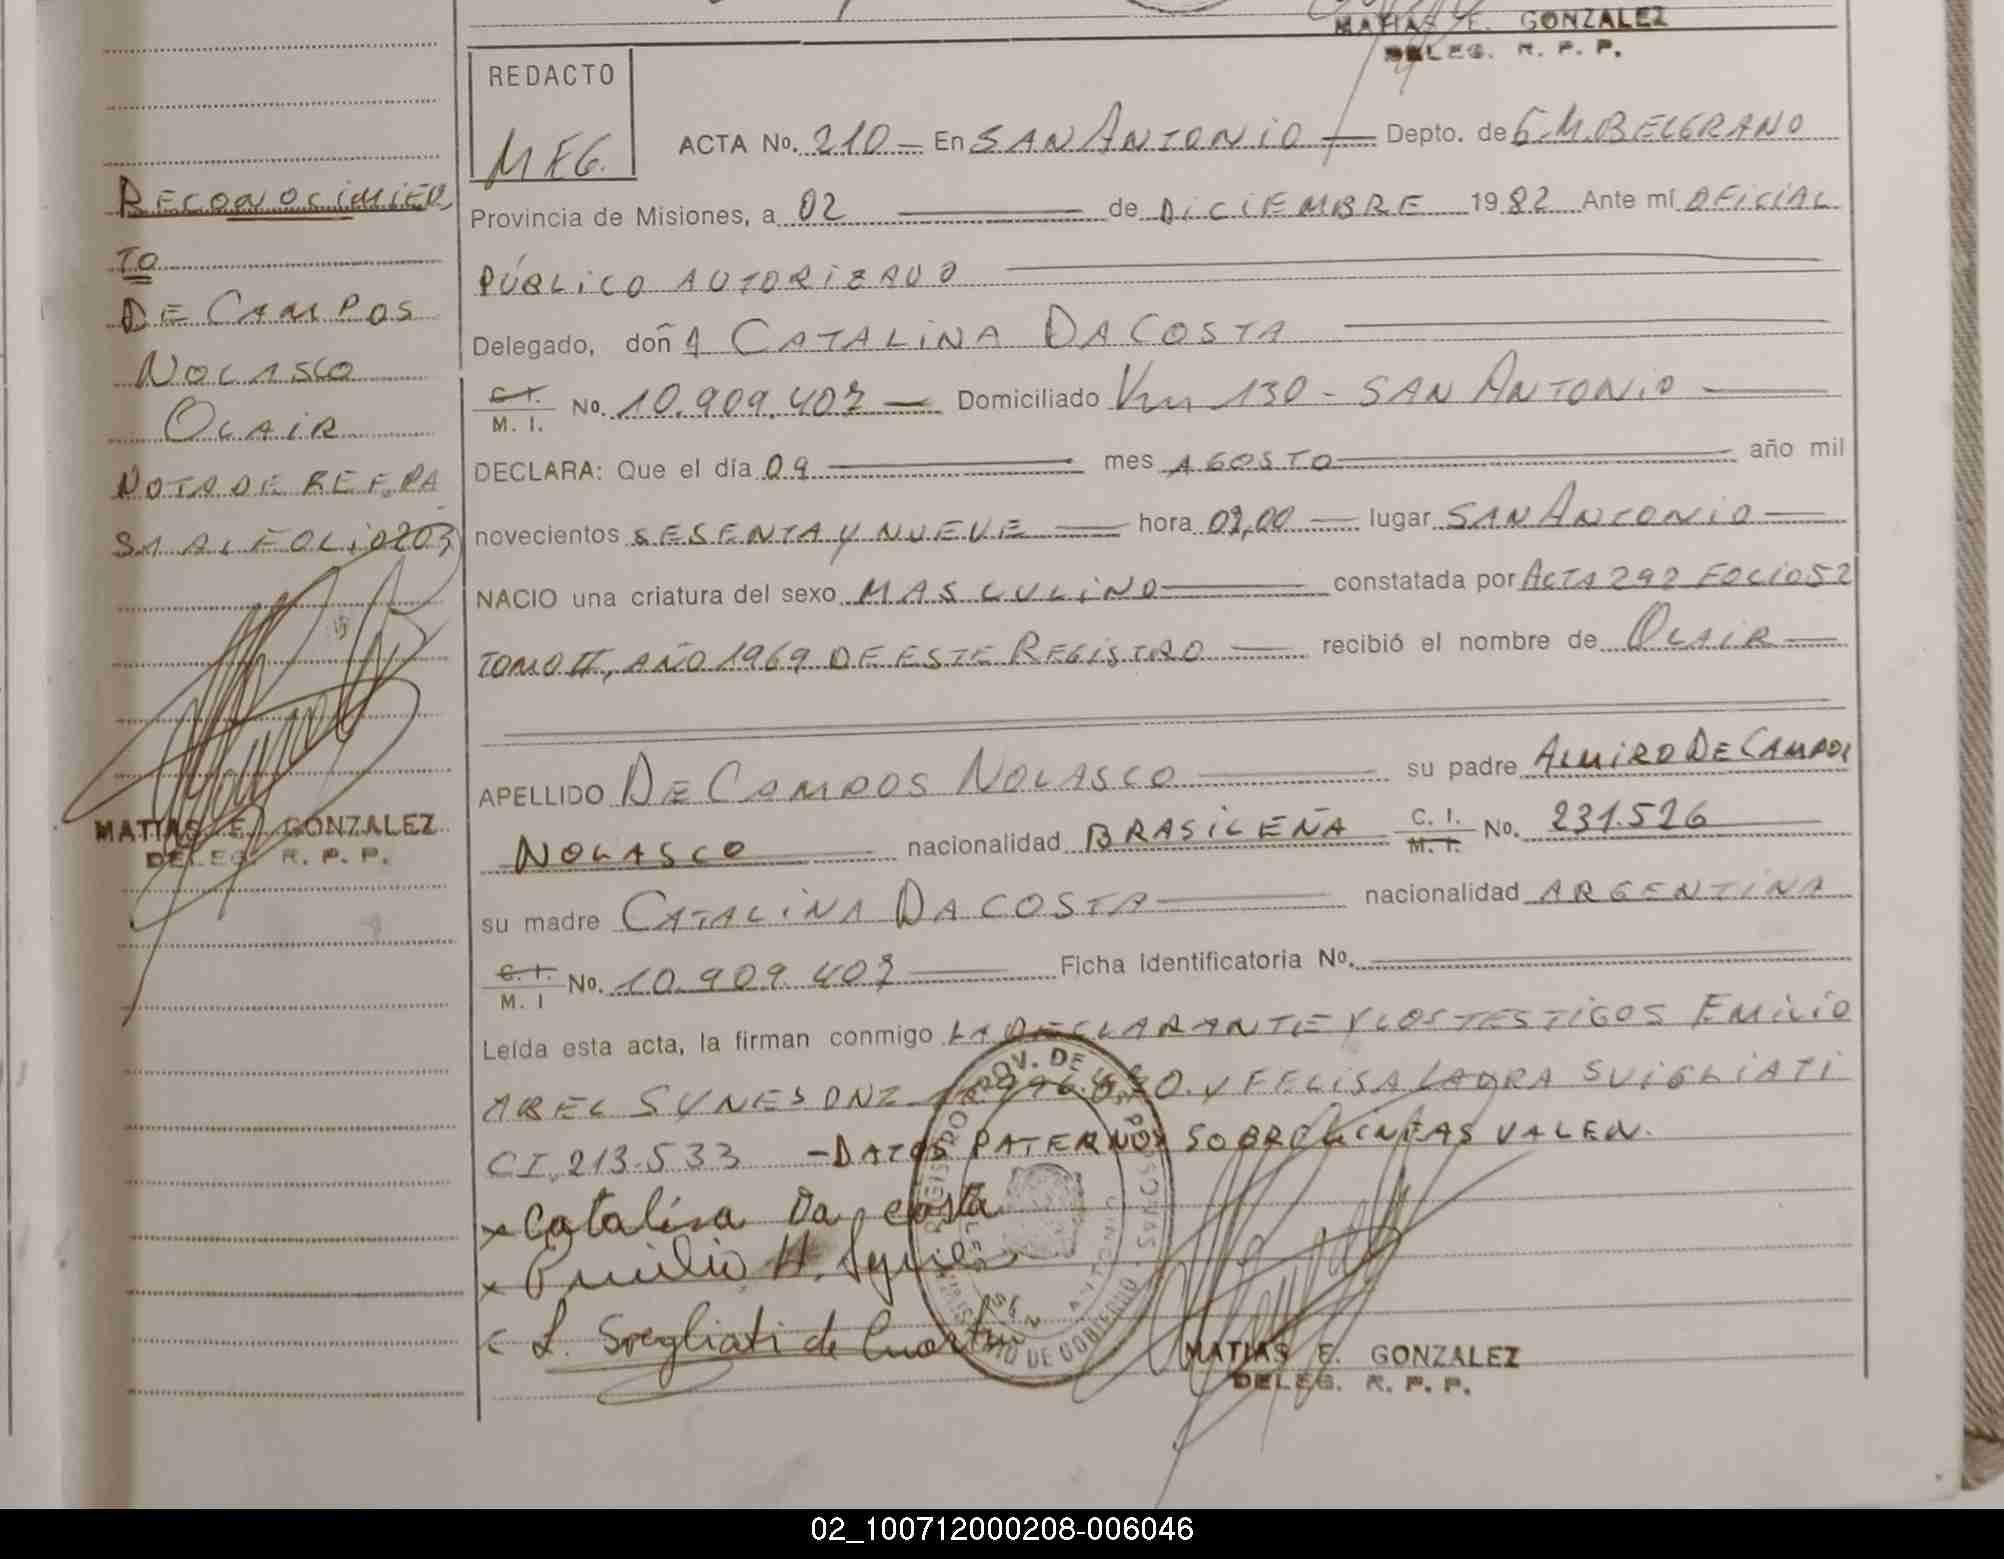 MATIAS E. GONZALEZ
DELEG. R. P. P.
REDACTO
MEG.
ACTA No. 210 — En SAN ANTONIO — Depto. de G.M. BELGRANO
Provincia de Misiones, a 02 — de DICIEMBRE 1982 Ante mí OFICIAL
PÚBLICO AUTORIZADO
Delegado, doñA CATALINA DA COSTA
C.I. / M. I. No. 10.909.407 — Domiciliado Km 130 - SAN ANTONIO —
DECLARA: Que el día 09 — mes AGOSTO — año mil
novecientos SESENTA Y NUEVE — hora 09,00 — lugar SAN ANTONIO —
NACIO una criatura del sexo MASCULINO — constatada por ACTA 292 FOLIO 52
TOMO II, AÑO 1969 DE ESTE REGISTRO — recibió el nombre de OLAIR —
APELLIDO DE CAMPOS NOLASCO — su padre ALMIRO DE CAMPOS
NOLASCO — nacionalidad BRASILEÑA C. I. / M. I. No. 231.526
su madre CATALINA DA COSTA — nacionalidad ARGENTINA
C. I. / M. I No. 10.909.407 — Ficha identificatoria No. —
Leída esta acta, la firman conmigo LA DECLARANTE Y LOS TESTIGOS EMILIO
ABEL SYNES DNI y FELISA LAURA SVIGLIATI
CI. 213.533 - DATOS PATERNOS SOBRE LINEAS VALEN.
x Catalina Da costa
x Emilio A. Synes
L. Svegliati de
MATIAS E. GONZALEZ
DELEG. R. P. P.
RECONOCIMIEN
TO
DE CAMPOS
NOLASCO
OLAIR
NOTA DE REF. PA
SA AL FOLIO 203
MATIAS E. GONZALEZ
DELEG. R. P. P.
02_100712000208-006046